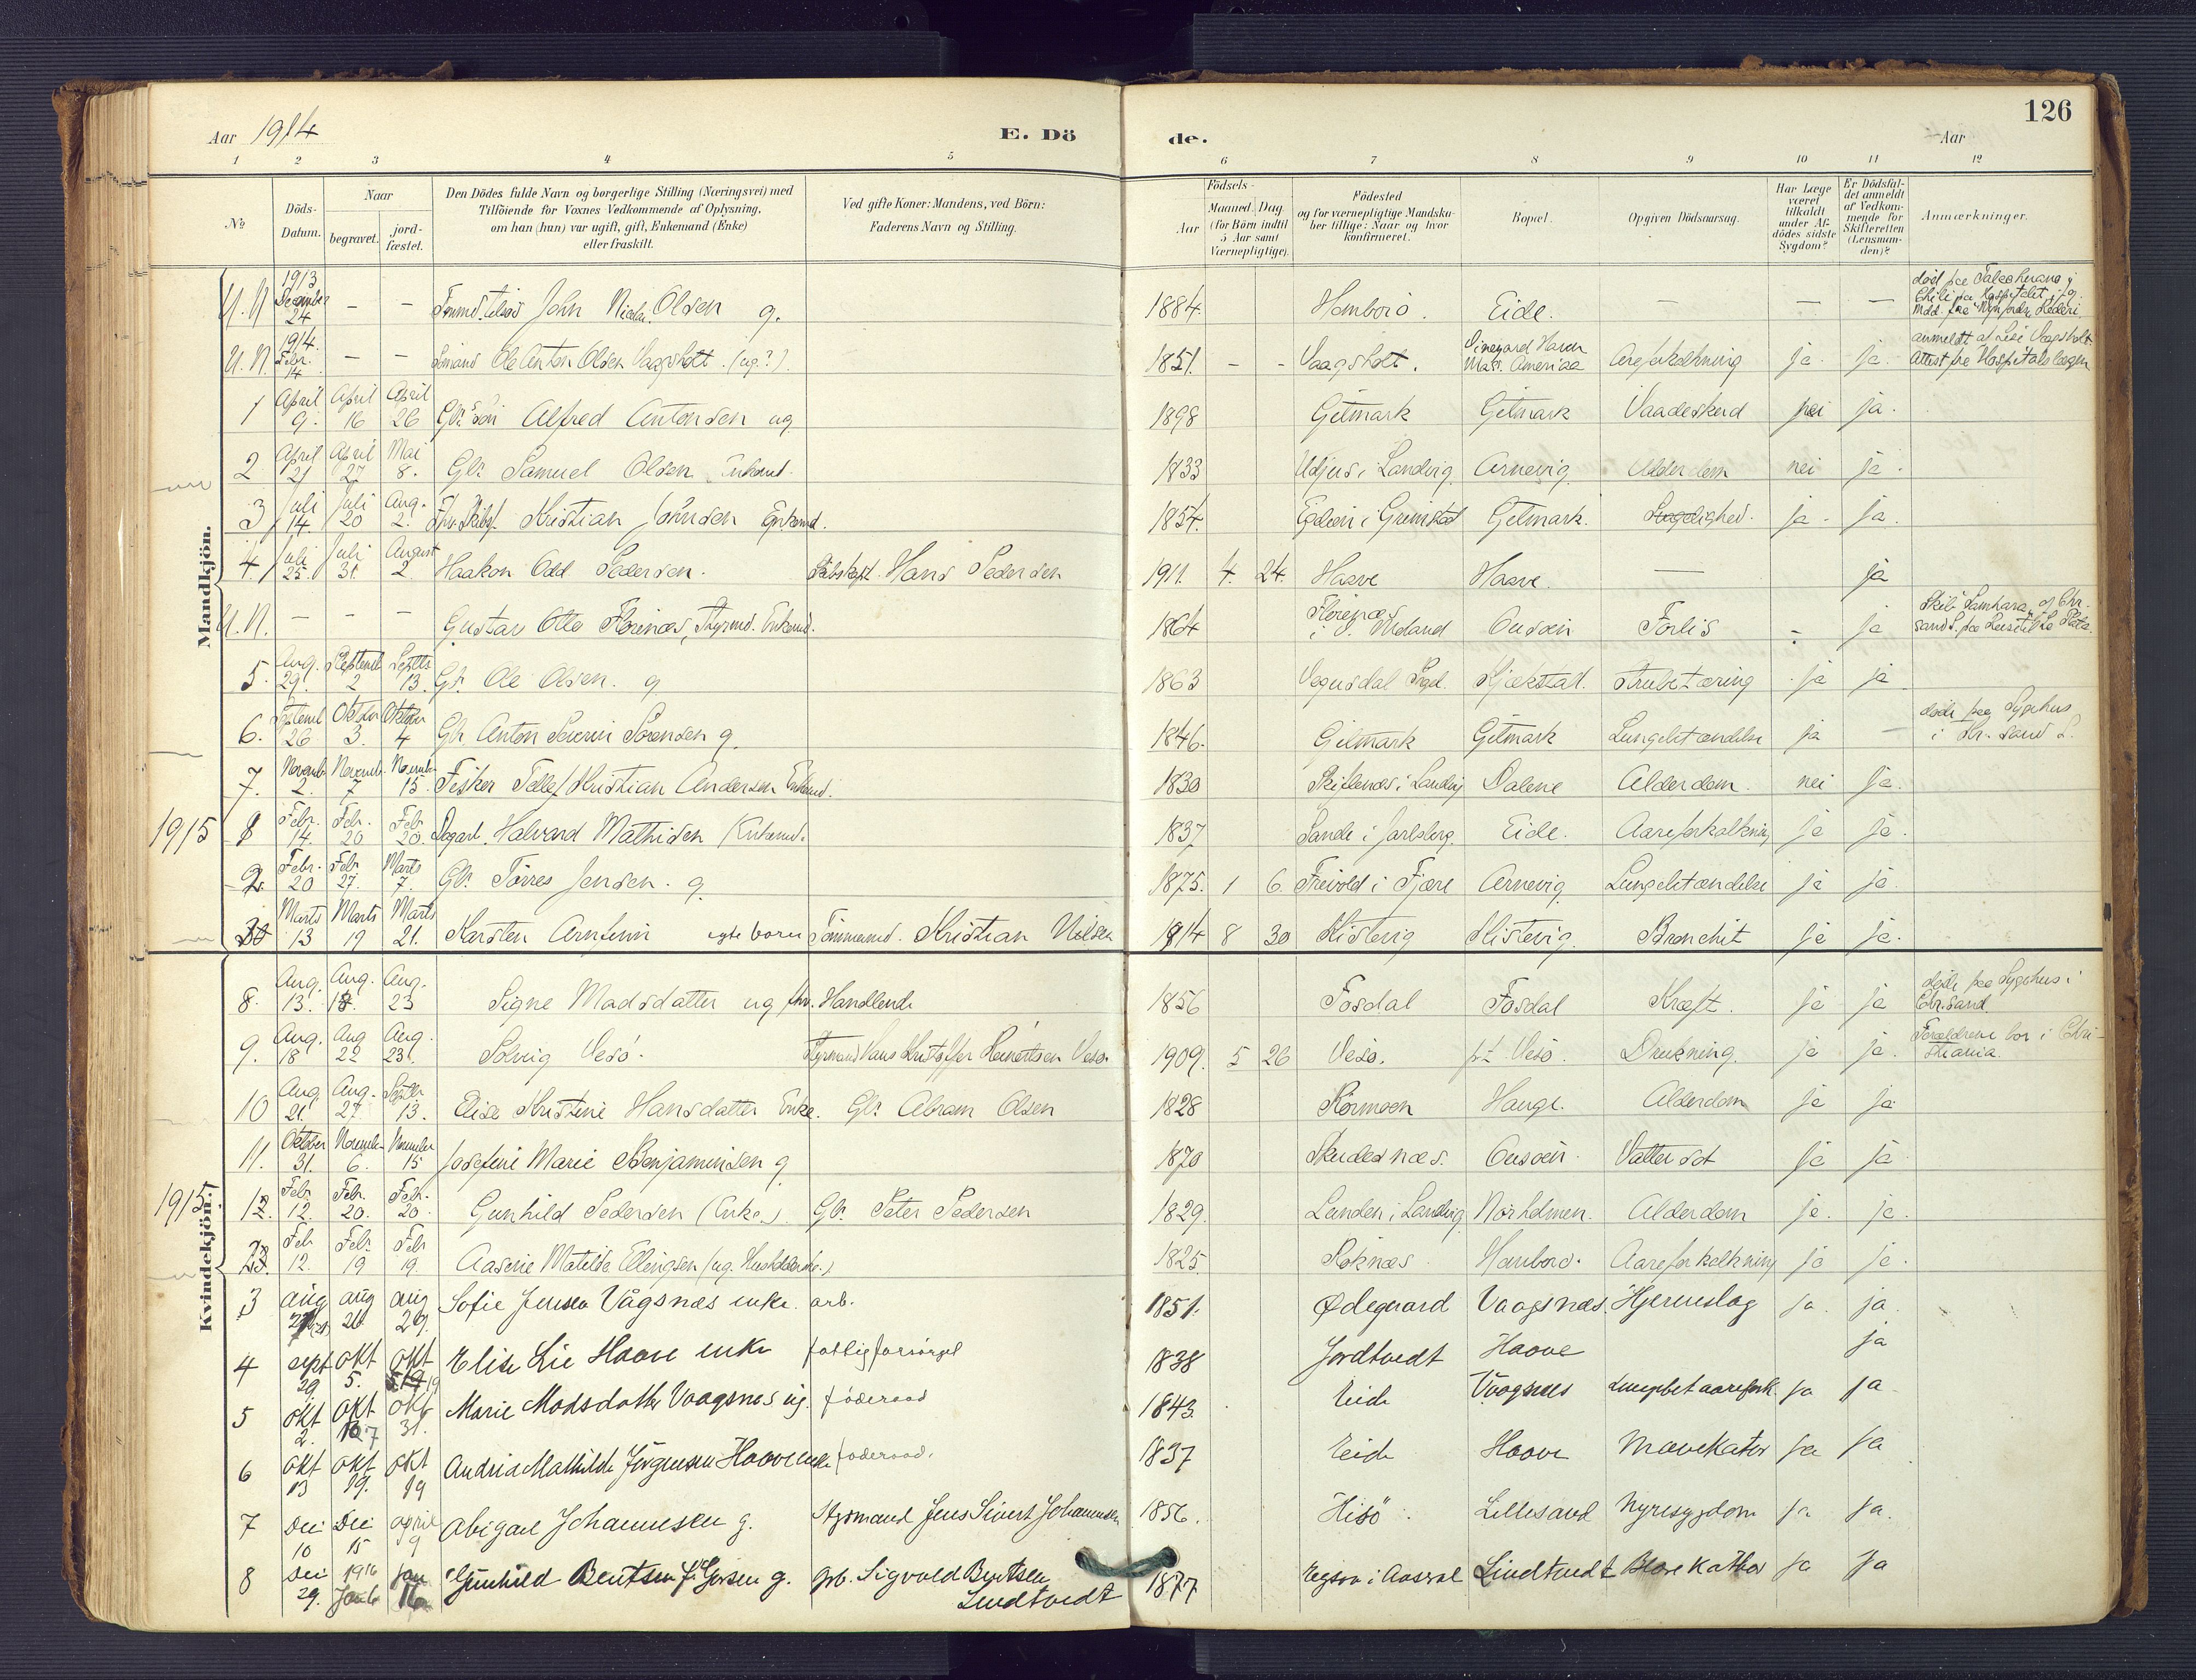 126
Aar 1914
E. Dö
de.
Aar
1 2 3 4 5 6 7 8 9 10 11 12
No
Döds-
Datum.
Naar
begravet.
jord-
fæstet.
Den Dödes fulde Navn og borgerlige Stilling (Næringsvei) med
Tilföiende for Voxnes Vedkommende af Oplysning,
om han (hun) var ugift, gift, Enkemand (Enke)
eller fraskilt.
Ved gifte Koner: Mandens, ved Börn:
Faderens Navn og Stilling.
Födsels-
Aar
Maaned. Dag
(for Börn indtil
5 Aar samt
Værnepligtige).
Födested
og for værnepligtige Mandska-
ber tillige: Naar og hvor
konfirmeret.
Bopæl.
Opgiven Dödsaarsag.
Har Læge
været
tilkaldt
under Af-
dödes sidste
Sygdom?
Er Dödsfal-
det anmeldt
af Vedkom-
mende for
Skifteretten
(Lensman-
den)?
Anmærkninger.
Mandkjön.
U. N. 1913 December 24 – – John Nicolai Olsen g. 1884. Homborö. Eide. – – – død paa Talcahuano i Chili paa Hospitalet
U. N. 1914. Febr. 14 – – Ole Anton Olsen Vaagsholt. (ug?). 1851. – – Vaagsholt. Vineyard Haven Mass. Amerika Areforkalkning ja ja anmeldt af Vaagsholt Attest fra Hospitalslægen
1 April 9. April 16 April 26 Gbr. Søn Alfred Antonsen ug 1898 Gitmark Gitmark Vaadeskud nei ja.
2 April 21 April 27 Mai 8. Gbr. Samuel Olsen Enkemd. 1833 Udjus i Landvig Arnevig Alderdom nei ja.
3 Juli 14. Juli 20 Aug. 2. Kristian Johnsen Enkemd. 1854. Grimstad Gitmark. ja. ja.
4. Juli 25. Juli 31. August 2 Haakon Odd Pedersen. Skibskapt. Hans Pedersen 1911. 4. 24. Haave Haave. – ja
U. N. – – – Gustav Otto Florenæs, Styrmd. Enkemd. 1864 Florenæs i Ø. Moland Ousøen Forlis – ja
5. Aug. 29. Septembr 2 Septbr 13. Gbr. Ole Olsen. g 1863 Vegusdal Kjøkstad. Strubetæring ja ja
6. Septembr 26 Oktober 3. Oktober 4 Gbr. Anton Severin Sørensen g. 1846. Gitmark Gitmark Lungebetændelse ja – døde paa Sygehus i Chr. sand S.
7. Novemb. 2. Novemb. 7 Novemb. 15. Fisker Tellef Kristian Andersen Enkemd. 1830 Skiftenæs i Landvig Dalene Alderdom. nei ja.
1915 1 Febr. 14. Febr. 20 Feb 20. Halvard Mathisen (Enkemd. 1837 Sande i Jarlsberg. Eide. Aareforkalkning ja ja.
2. Febr. 20 Feb. 27. Marts 7. Gbr. Tørres Jensen. g. 1875. 1 6. Freivold i Fjære Arnevig Lungebetændelse ja ja.
3 Marts 13 Marts 19 Marts 21. Karsten Arnfinn egte barn Tømmermd. Kristian Nilsen 1914 8 30 Kistevig Kistevig Bronchit ja ja.
Kvindekjön.
8. Aug. 13. Aug. 18. Aug. 23 Signe Madsdatter ug fhv. Handlende 1856 Fosdal Fosdal Kræft. ja ja døde paa Sygehus i Chr.sand
9. Aug. 18 Aug 22 Aug. 23. Solvig Vesö. Styrmand Hans Kristoffer Reinertsen Vesö 1909. 5 26 Vesö. p.t. Vesö. Drukning. ja ja. Forældrene bor i Christiania.
10 Aug 21. Aug. 27. Septbr 13. Elise Kristine Hansdatter Enke. Gbr. Abram Olsen 1828 Rørmoen Hauge. Alderdom ja ja.
11. Oktober 31. Novemb. 6. November 15 Josefine Marie Benjaminsen g. 1870 Skudesnæs. Ousøen. Vattersot ja ja.
1915. 1 Feb 12. Feb. 20. Feb. 20. Gunhild Pedersen (Enke.) Gbr. Peter Pedersen 1829. Landvig Norholmen. Alderdom ja. ja.
2 Feb 12. Feb. 19 Feb 19. Aasine Matilde Ellingsen (ug. 1825. Røknæs Homborö. Aareforkalkning ja ja.
3 aug aug 26 aug 29. Sofie Jensen Vågsnæs enke. arb. 1851. Ødegaard Vaagsnæs. Hjerneslag ja. ja.
4 sept 29. okt 5. okt Elise Lie Haave enke fattigforsörget 1838 Jordtvedt Haave ja
5 okt 2. okt okt 31. Marie Madsdatter Vaagsnes ug. föderaad 1843. Eide Vaagsnes ja ja
6 okt 13 okt 19. okt 19 Andria Mathilde Jörgensen Haave enke föderaad. 1837 Eide Haave Mavekatar ja ja
7 Dec 10 Dec 15 april 9 Abigael Johannesen g. Styrmand Jens Sivert Johannesen 1856. Hisö. Lillesand Nyresygdom ja ja.
8 Dec 29. 1916 Jan 6 Jan 16 Gunhild Bentsen g. Gb. Sigvald Bentsen Lindtvedt 1877 i Aaseral Lindtvedt ja ja